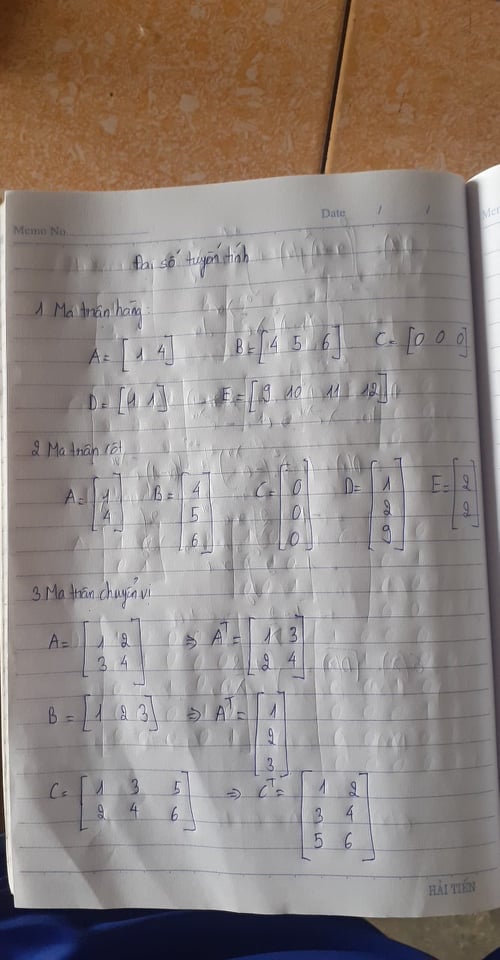 Memo No. Date / /
Đại số tuyến tính
1 Ma trận hàng:
A = [1 4] B = [4 5 6] C = [0 0 0]
D = [1 1] E = [9 10 11 12]
2 Ma trận cột
A = [1 B = [4 C = [0 D = [1 E = [2
4] 5 0 2 2]
6] 0] 9]
3 Ma trận chuyển vị
A = [1 2 ⇒ Aᵀ = [1 3
3 4] 2 4]
B = [1 2 3] ⇒ Aᵀ = [1
2
3]
C = [1 3 5 ⇒ Cᵀ = [1 2
2 4 6] 3 4
5 6]
HẢI TIẾN